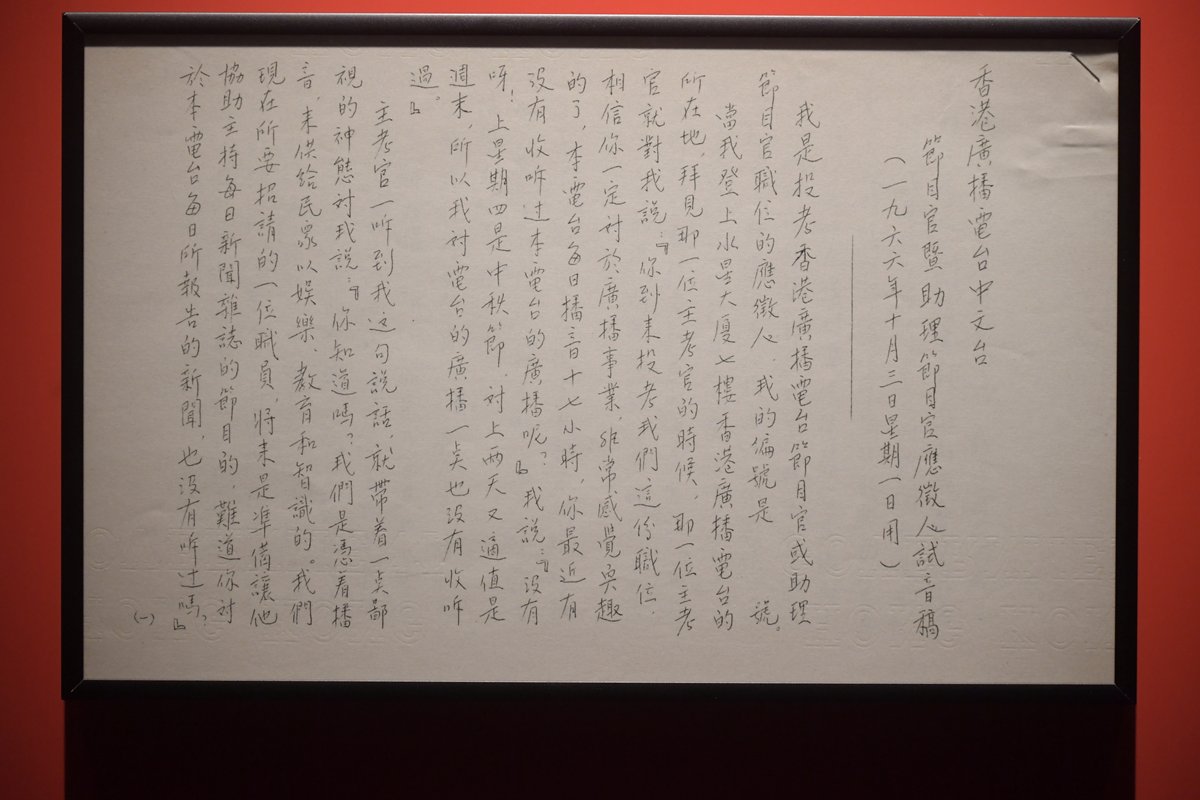 香港廣播電台中文台
節目官暨助理節目官應徵人試音稿
(一九六六年十月三日星期一日用)
我是投考香港廣播電台節目官或助理
節目官職位的應徵人,我的编號是 號。
當我登上水星大廈七樓香港廣播電台的
所在地,拜見那一位主考官的時候,那一位主考
官就對我說:『你到來投考我們這份職位,
相信你一定对於廣播事業,非常感覺興趣
的了,本電台每日播音十七小時,你最近有
没有收听过本電台的廣播呢?』我說:『没有
呀!上星期四是中秋節,对上两天又適值是
週末,所以我对電台的廣播一点也没有收听
過。』
主考官一听到我这句説話,就帶着一点鄙
視的神態对我説:『你知道嗎?我們是憑着播
音,来供給民眾以娱樂、教育和智識的。我們
現在所要招請的一位職員,将来是準備讓他
協助主持每日新聞雜誌的節目的,難道你对
於本電台每日所報告的新聞,也没有听过嗎?』
(一)